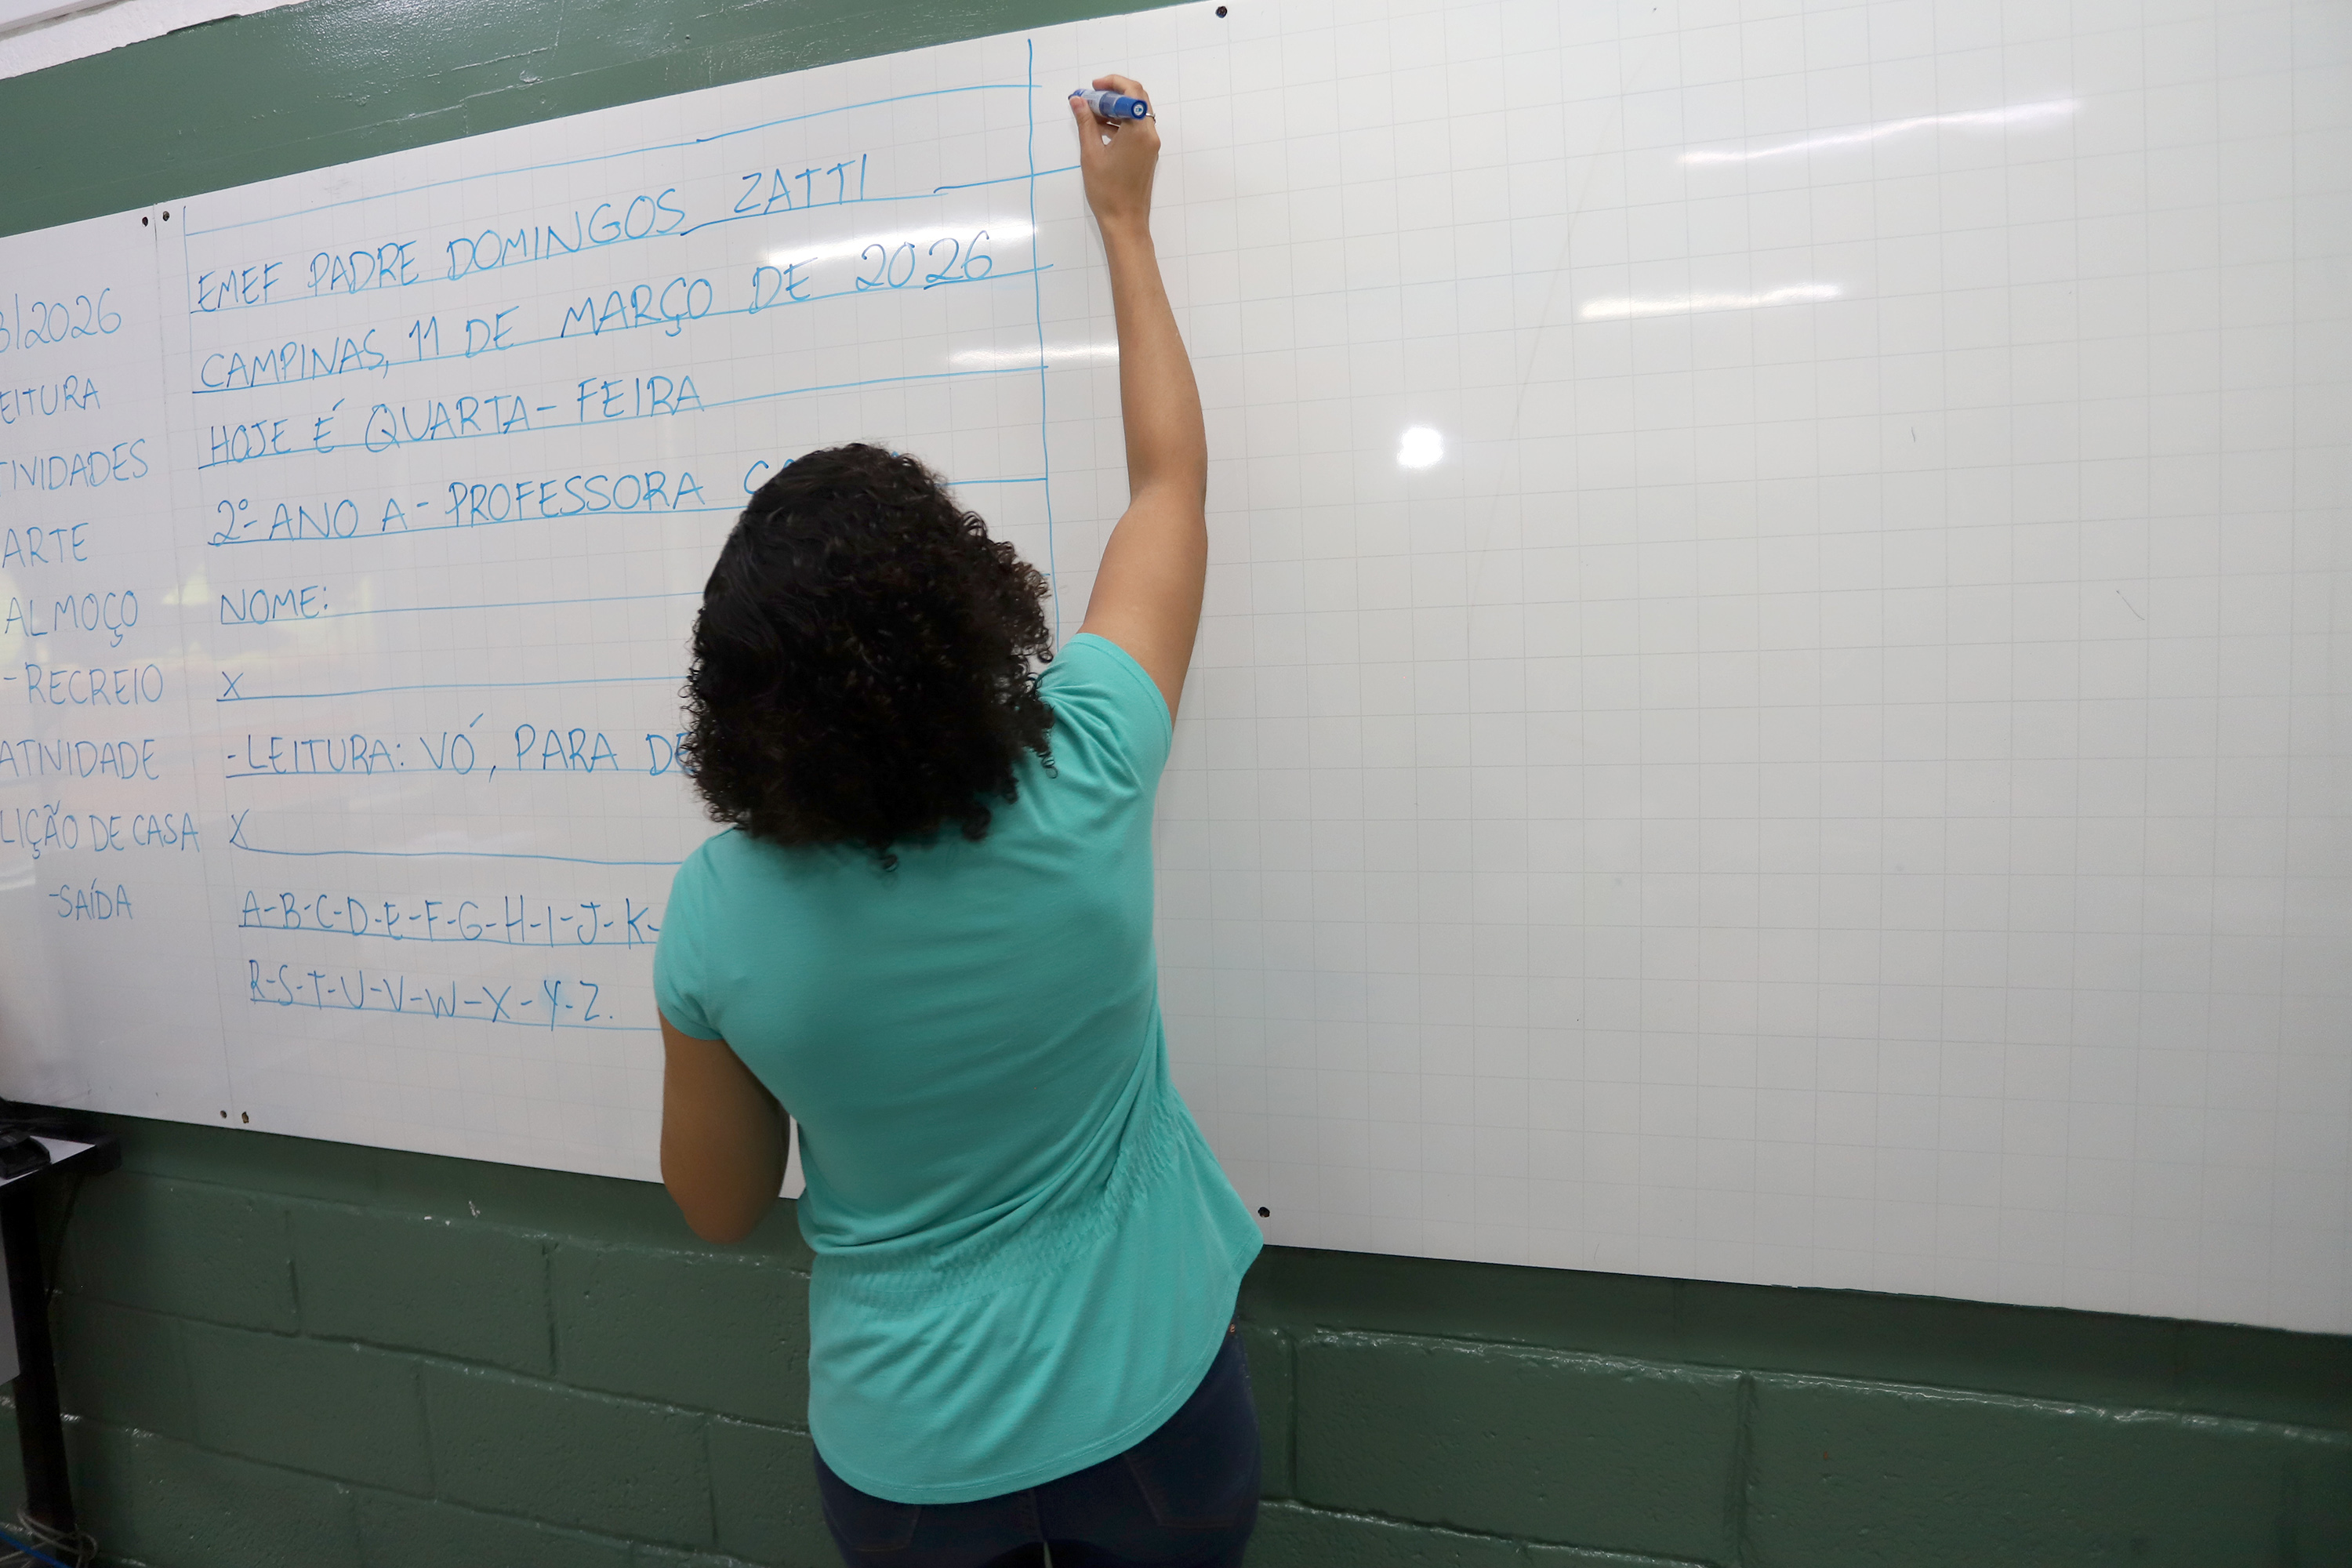 EITURA
ARTE
ALMOÇO
-RECREIO
ATIVIDADE
LIÇÃO DE CASA
-SAÍDA
EMEF PADRE DOMINGOS ZATTI
CAMPINAS, 11 DE MARÇO DE 2026
HOJE É QUARTA-FEIRA
2º ANO A - PROFESSORA
NOME:
X
-LEITURA: VÓ, PARA DE
X
A-B-C-D-E-F-G-H-I-J-K-
R-S-T-U-V-W-X-Y-Z.